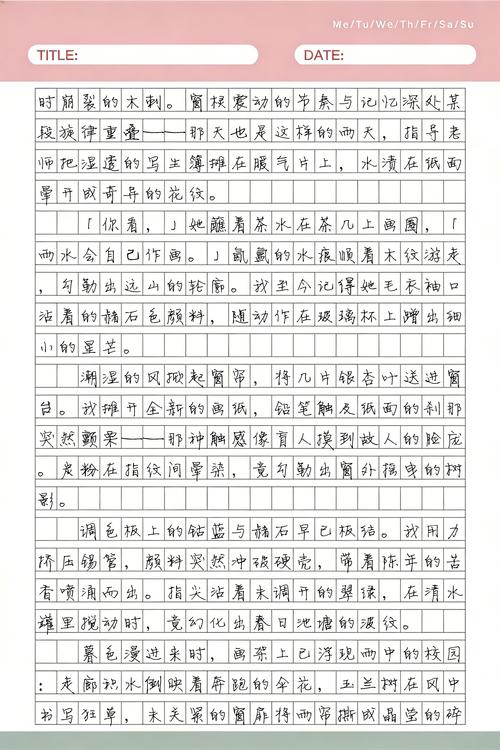 Me/Tu/We/Th/Fr/Sa/Su
TITLE: DATE:
时崩裂的木刺。窗棂震动的节奏与记忆深处某
段旋律重叠——那天也是这样的雨天，指导老
师把湿透的写生簿摊在暖气片上，水渍在纸面
晕开成奇异的花纹。
「你看，」她蘸着茶水在茶几上画圈，「
雨水会自己作画。」氤氲的水痕顺着木纹游走
，勾勒出远山的轮廓。我至今记得她毛衣袖口
沾着的赭石色颜料，随动作在玻璃杯上蹭出细
小的星芒。
潮湿的风掀起窗帘，将几片银杏叶送进窗
台。我摊开全新的画纸，铅笔触及纸面的刹那
突然颤栗——那种触感像盲人摸到故人的脸庞
。炭粉在指纹间晕染，竟勾勒出窗外摇曳的树
影。
调色板上的钴蓝与赭石早已板结。我用力
挤压锡管，颜料突然冲破硬壳，带着陈年的苦
香喷涌而出。指尖沾着未调开的翠绿，在清水
罐里搅动时，竟幻化出春日池塘的波纹。
暮色漫进来时，画架上已浮现雨中的校园
：走廊积水倒映着奔跑的伞花，玉兰树在风中
书写狂草，未关紧的窗扉将雨帘撕成晶莹的碎